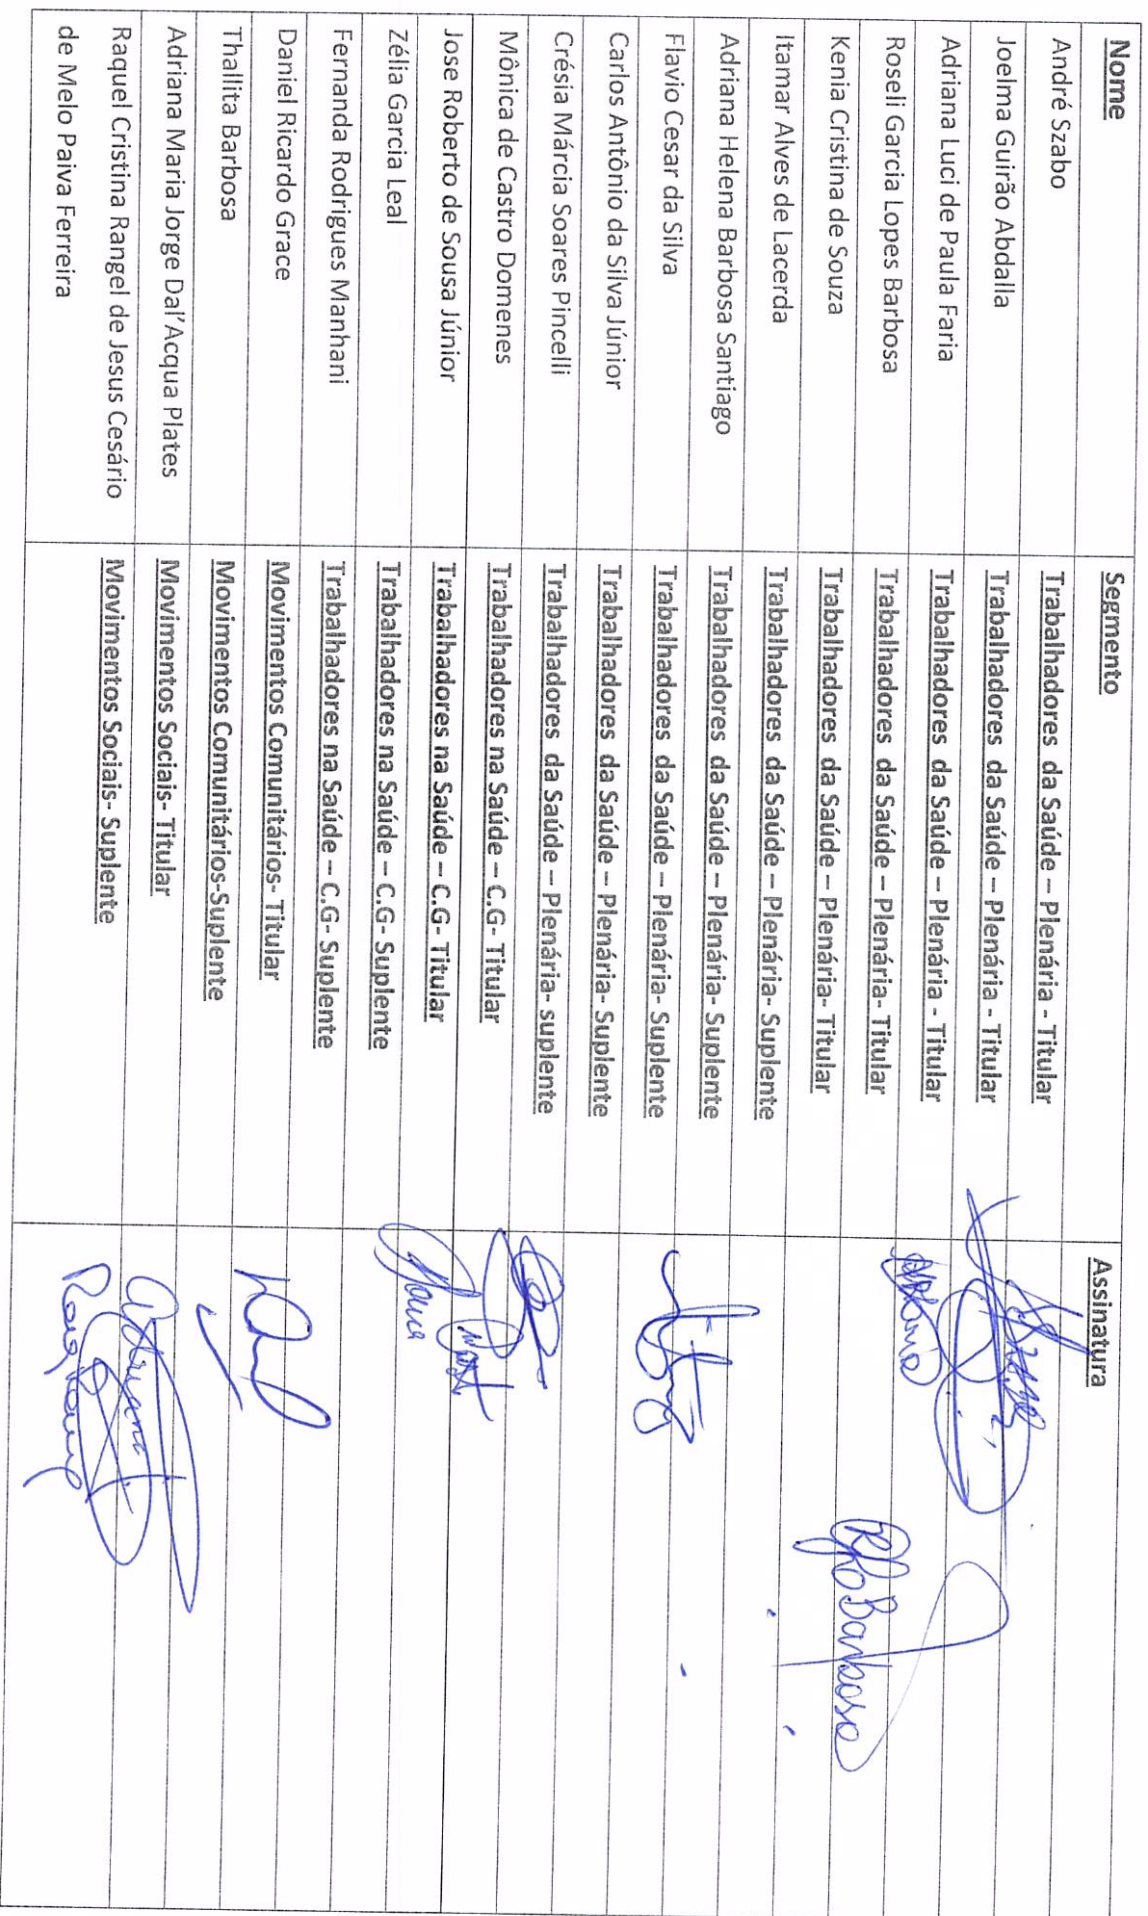 Nome Segmento Assinatura
André Szabo Trabalhadores da Saúde – Plenária - Titular
Joelma Guirão Abdalla Trabalhadores da Saúde – Plenária - Titular
Adriana Luci de Paula Faria Trabalhadores da Saúde – Plenária - Titular
Roseli Garcia Lopes Barbosa Trabalhadores da Saúde – Plenária- Titular
Kenia Cristina de Souza Trabalhadores da Saúde – Plenária- Titular
Itamar Alves de Lacerda Trabalhadores da Saúde – Plenária- Suplente
Adriana Helena Barbosa Santiago Trabalhadores da Saúde – Plenária- Suplente
Flavio Cesar da Silva Trabalhadores da Saúde – Plenária- Suplente
Carlos Antônio da Silva Júnior Trabalhadores da Saúde – Plenária- Suplente
Crésia Márcia Soares Pincelli Trabalhadores da Saúde – Plenária- suplente
Mônica de Castro Domenes Trabalhadores na Saúde – C.G- Titular
Jose Roberto de Sousa Júnior Trabalhadores na Saúde – C.G- Titular
Zélia Garcia Leal Trabalhadores na Saúde – C.G- Suplente
Fernanda Rodrigues Manhani Trabalhadores na Saúde – C.G- Suplente
Daniel Ricardo Grace Movimentos Comunitários- Titular
Thallita Barbosa Movimentos Comunitários-Suplente
Adriana Maria Jorge Dal'Acqua Plates Movimentos Sociais- Titular Adriana
Raquel Cristina Rangel de Jesus Cesário Movimentos Sociais- Suplente
de Melo Paiva Ferreira
Barbosa